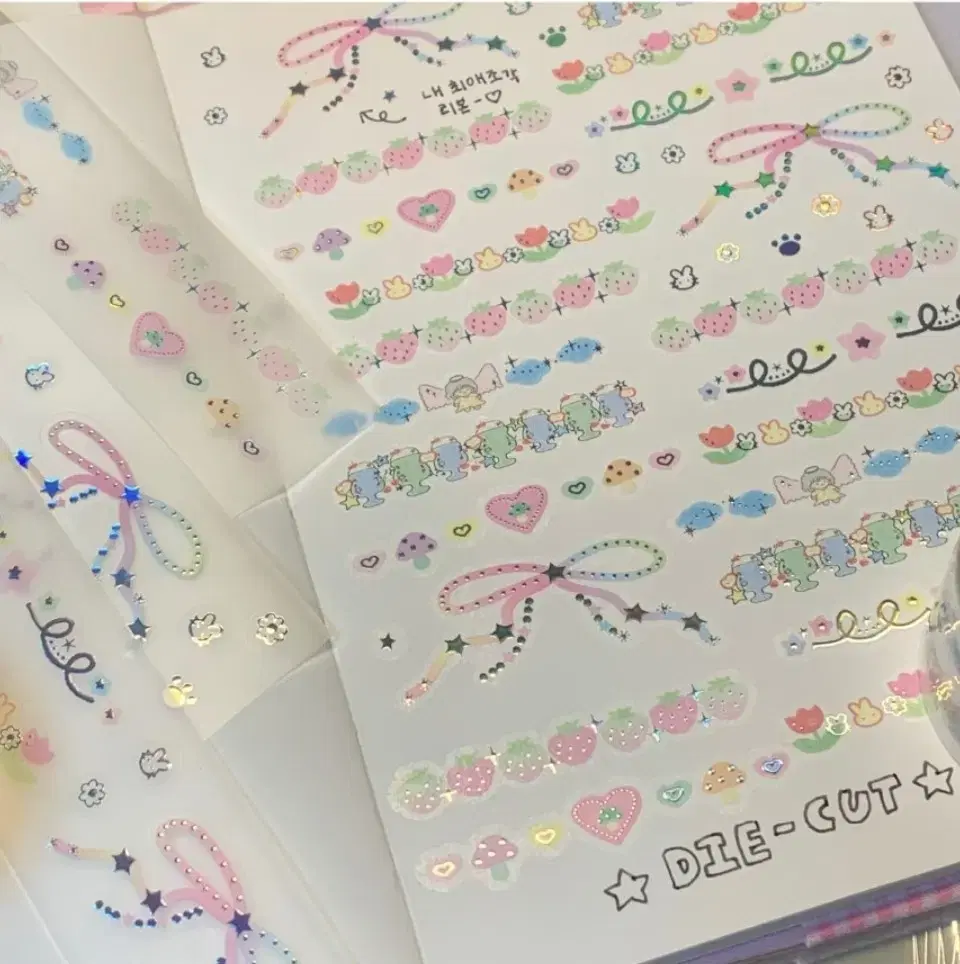 내 최애조각
리본-♡
☆ DIE-CUT ☆